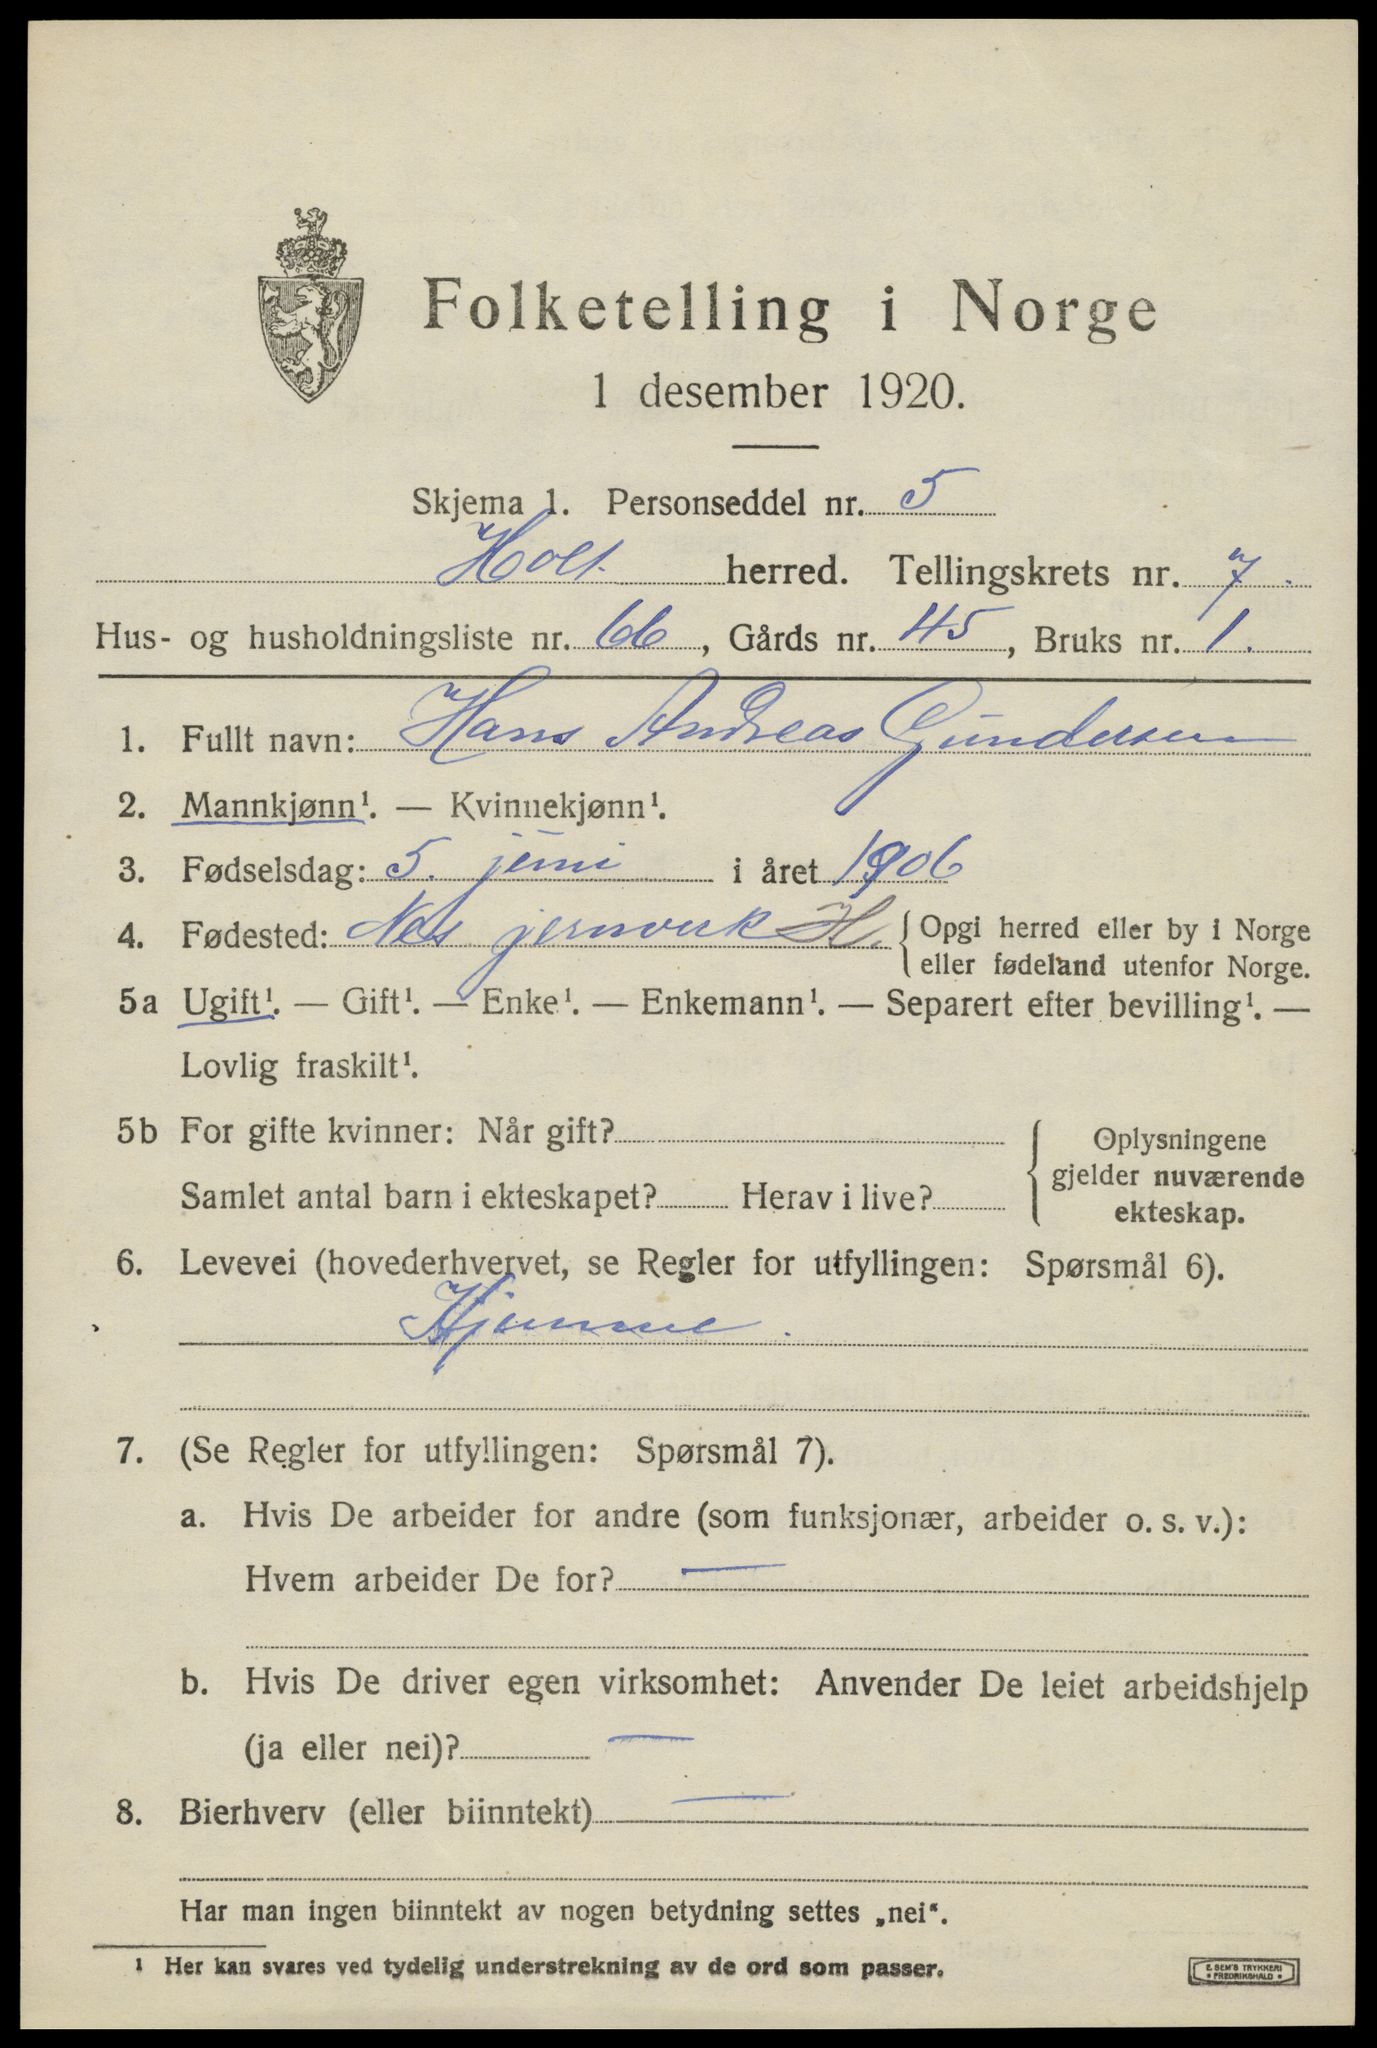 Folketelling i Norge
1 desember 1920.
Skjema 1. Personseddel nr. 5
Holt herred. Tellingskrets nr. 7.
Hus- og husholdningsliste nr. 66, Gårds nr. 45, Bruks nr. 1.
1. Fullt navn: Hans Andreas Gundersen
2. Mannkjønn¹. — Kvinnekjønn¹.
3. Fødselsdag: 5. juni i året 1906
4. Fødested: Nes jernverk H. { Opgi herred eller by i Norge
eller fødeland utenfor Norge.
5a Ugift¹. — Gift¹. — Enke¹. — Enkemann¹. — Separert efter bevilling¹. —
Lovlig fraskilt¹.
5b For gifte kvinner: Når gift?
Samlet antal barn i ekteskapet? Herav i live?
{ Oplysningene
gjelder nuværende
ekteskap.
6. Levevei (hovederhvervet, se Regler for utfyllingen: Spørsmål 6).
Hjemme.
7. (Se Regler for utfyllingen: Spørsmål 7).
a. Hvis De arbeider for andre (som funksjonær, arbeider o. s. v.):
Hvem arbeider De for? —
b. Hvis De driver egen virksomhet: Anvender De leiet arbeidshjelp
(ja eller nei)? —
8. Bierhverv (eller biinntekt) —
Har man ingen biinntekt av nogen betydning settes „nei“.
¹ Her kan svares ved tydelig understrekning av de ord som passer.
E. SEM'S TRYKKERI
• FREDRIKSHALD •